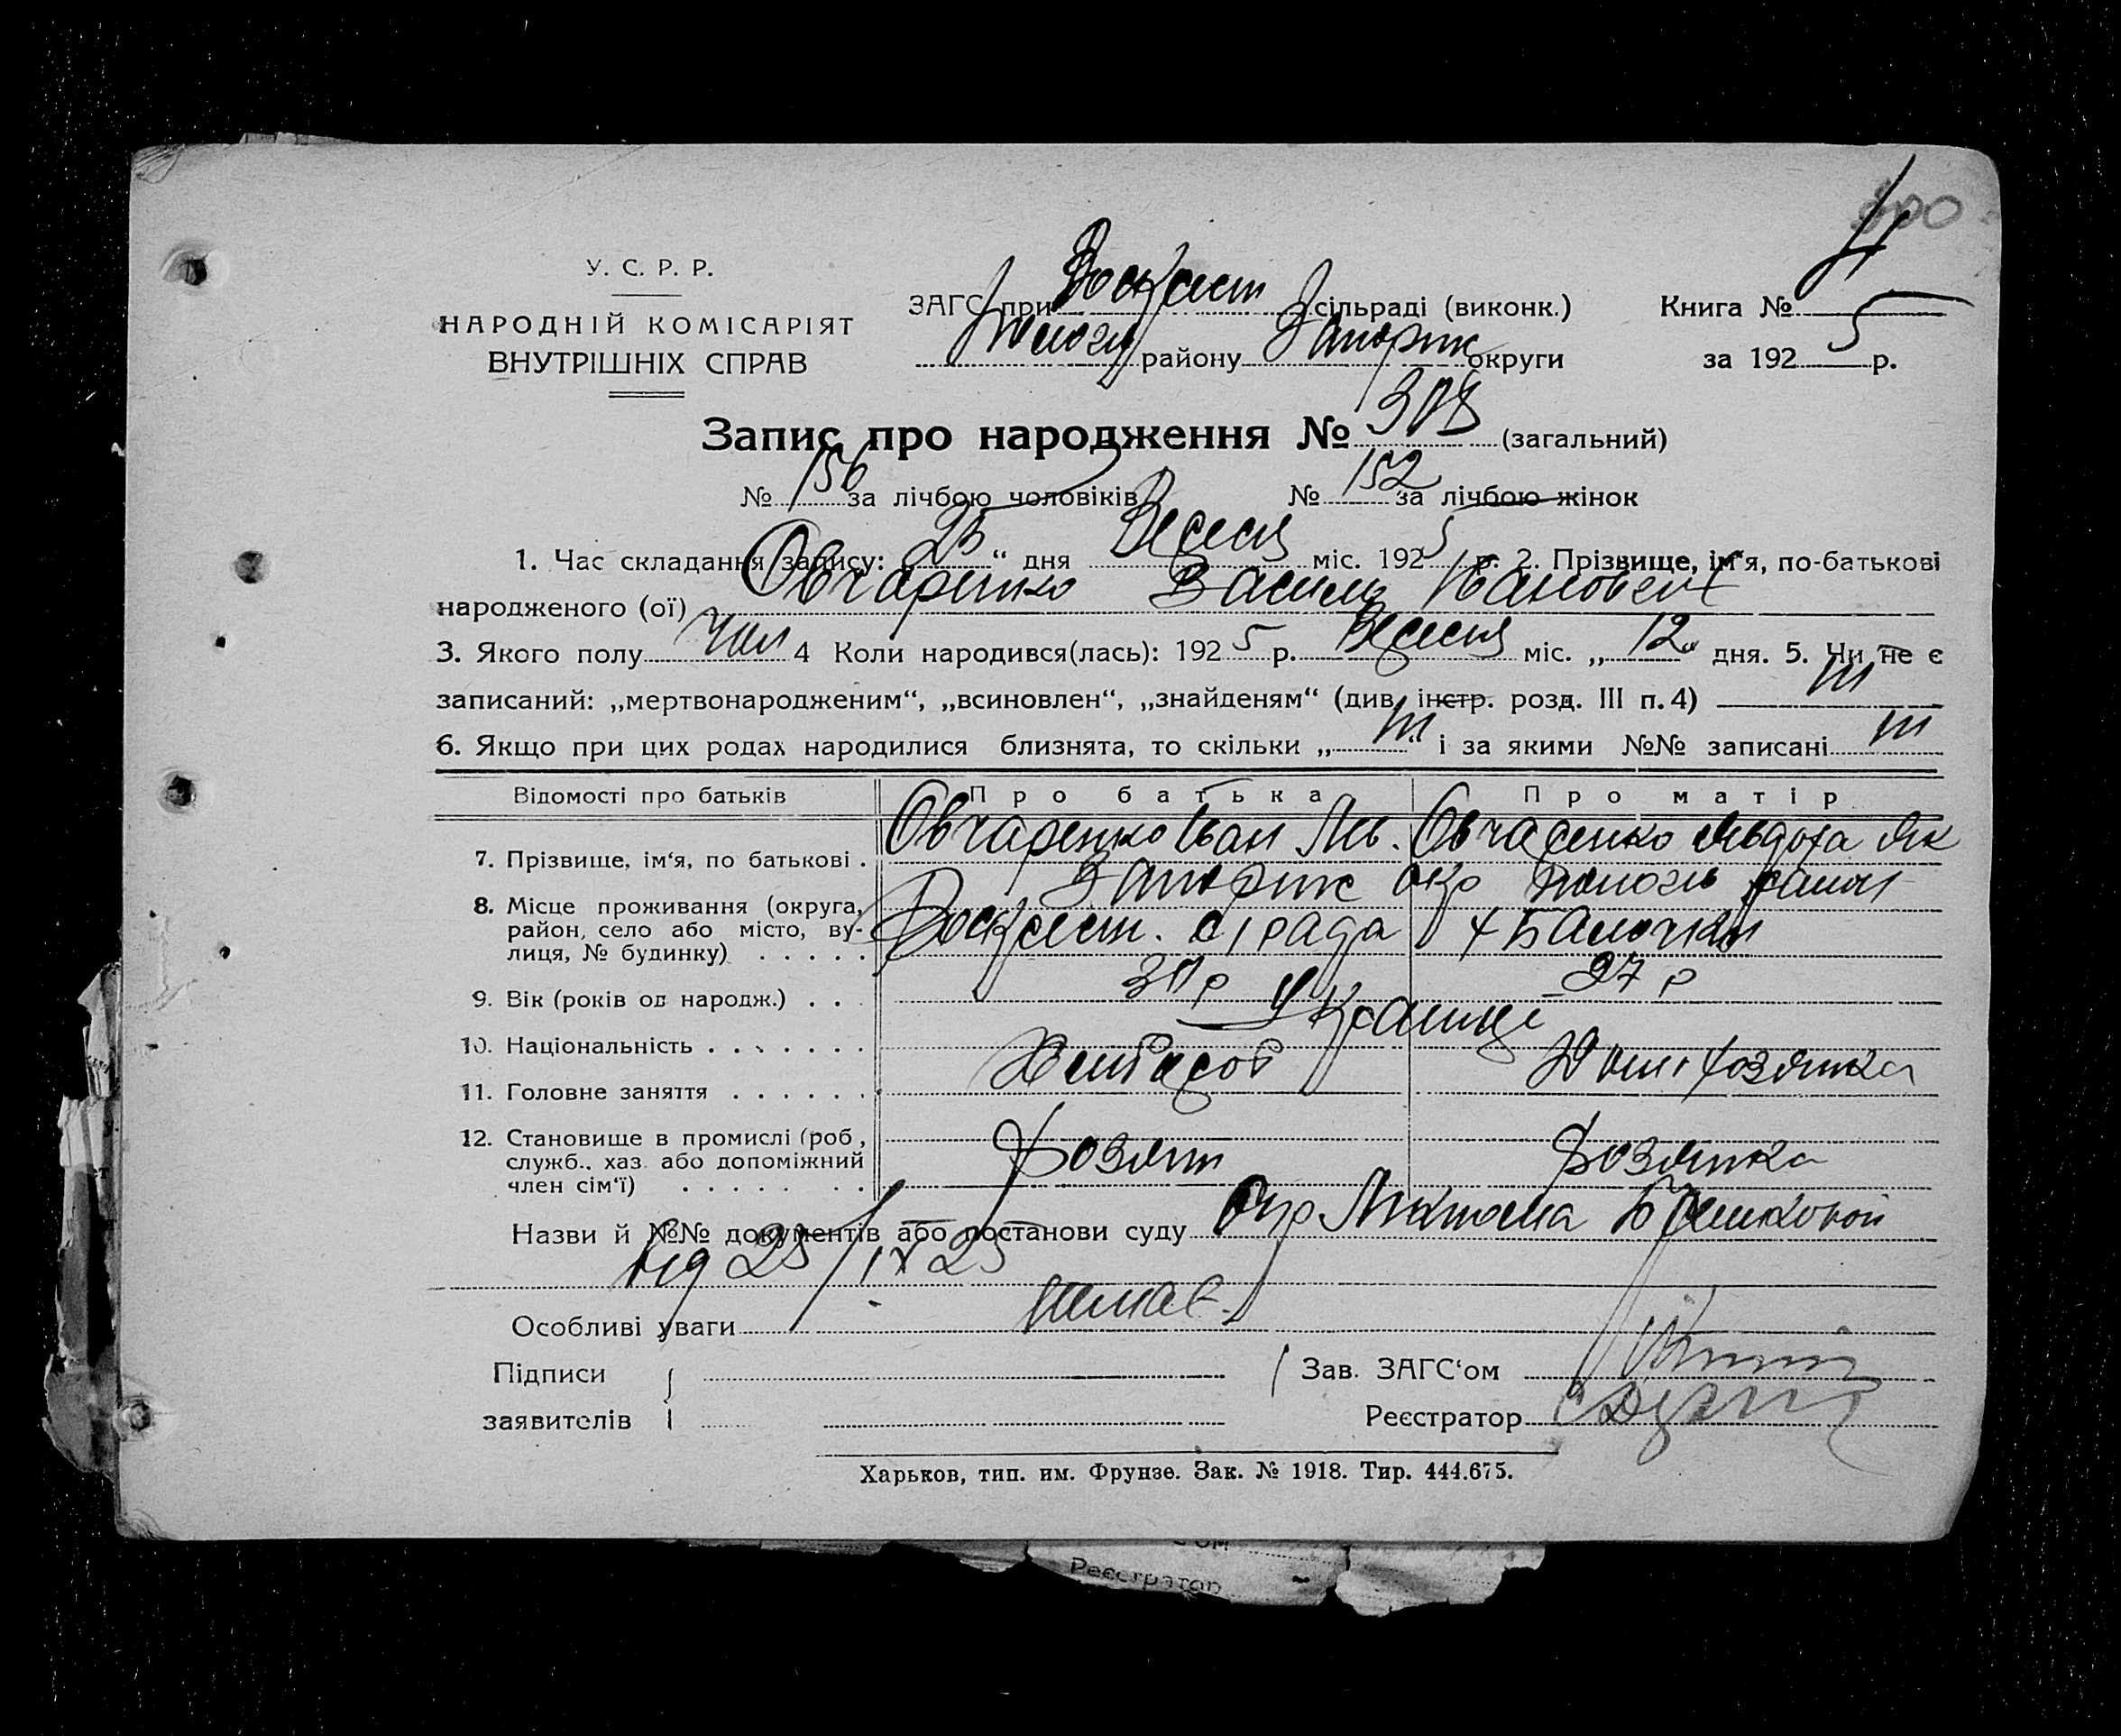 300
У. С. Р. Р.
НАРОДНІЙ КОМІСАРІЯТ
ВНУТРІШНІХ СПРАВ
ЗАГС при Воскресн сільраді (виконк.)
Пологи району Запоріж округи
Книга № 4
за 1925 р.
Запис про народження № 308 (загальний)
№ 156 за лічбою чоловіків № 152 за лічбою жінок
1. Час складання запису: 25 “ дня Вересня міс. 1925 р. 2. Прізвище, ім‘я, по-батькові
народженого (ої) Овчаренко Василь Іванович
3. Якого полу чол 4 Коли народився(лась): 1925 р. Вересня міс. „ 12 “ дня. 5. Чи не є
записаний: „мертвонародженим“, „всиновлен“, „знайденям“ (див. інстр. розд. III п. 4) ні
6. Якщо при цих родах народилися близнята, то скільки „ ні “ і за якими №№ записані ні
Відомості про батьків Про батька Про матір
7. Прізвище, ім‘я, по батькові . Овчаренко Іван Овчаренко Явдоха Як
8. Місце проживання (округа, район, село або місто, вулиця, № будинку) . . . . . Запоріж окр Пологів району
Воскресн. с/рада х Балочки
9. Вік (років од народж.) . . . 30 р 27 р
10. Національність . . . . . . . Українці
11. Головне заняття . . . . . . Хлібороб Дом. хозяйка
12. Становище в промислі (роб, служб., хаз. або допоміжний член сім‘ї) . . . . . . . Хозяин Хозяйка
Назви й №№ документів або постанови суду
від 25/IX 25
Особливі уваги немає.
Підписи
заявителів
Зав. ЗАГС‘ом
Реєстратор
Харьков, тип. им. Фрунзе. Зак. № 1918. Тир. 444.675.
Реєстратор